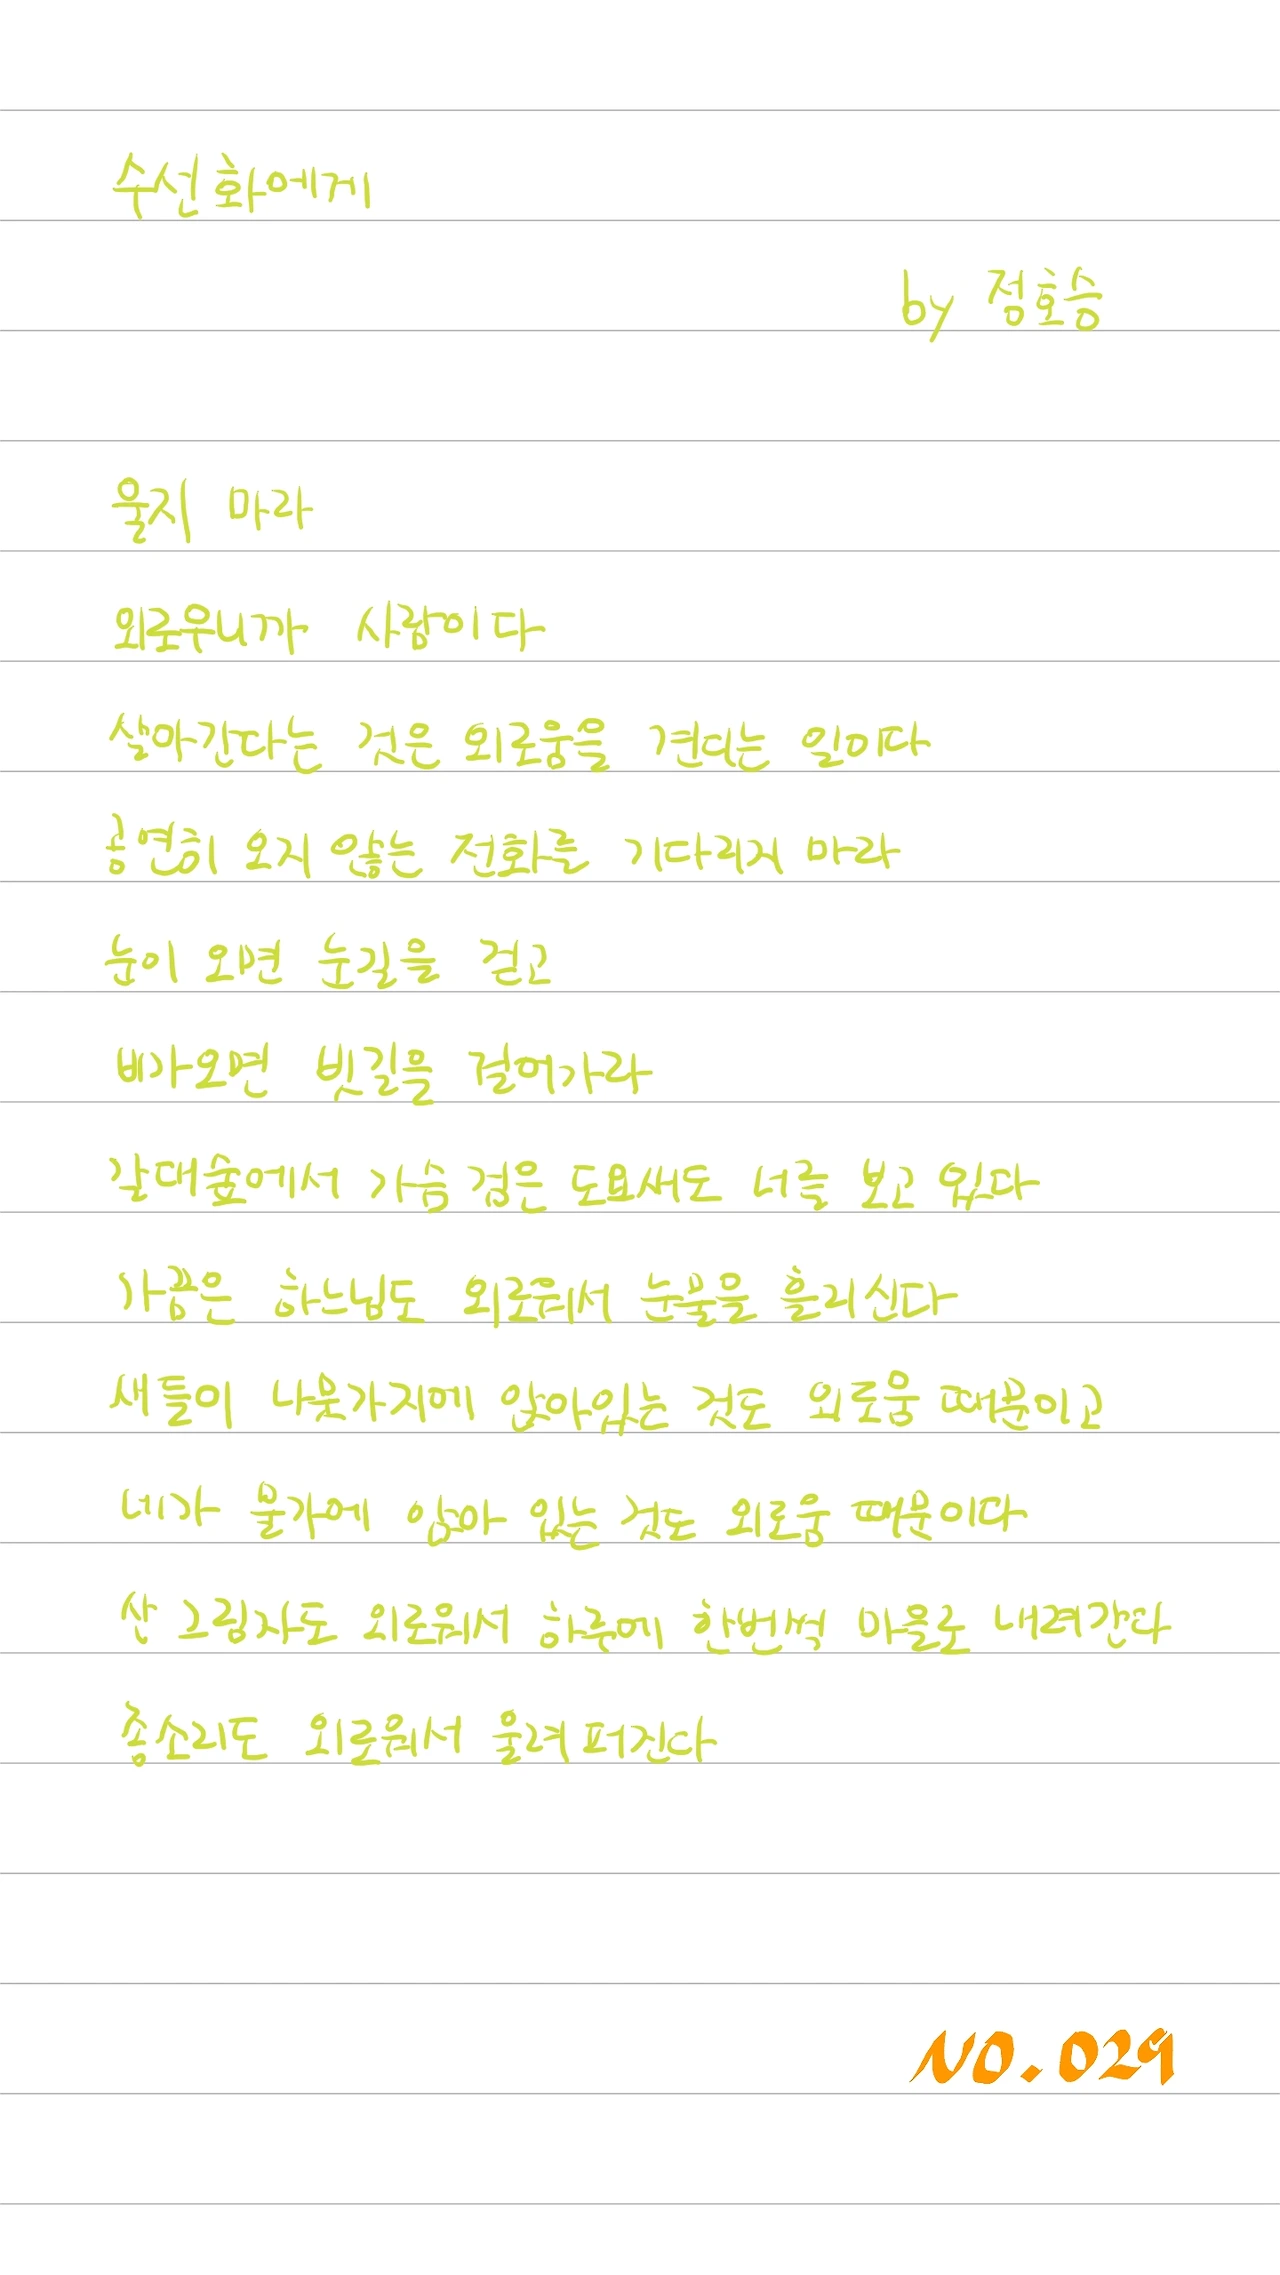 수선화에게
by 정호승
울지 마라
외로우니까 사람이다
살아간다는 것은 외로움을 견디는 일이다
공연히 오지 않는 전화를 기다리지 마라
눈이 오면 눈길을 걷고
비가오면 빗길을 걸어가라
갈대숲에서 가슴 검은 도요새도 너를 보고 있다
가끔은 하느님도 외로워서 눈물을 흘리신다
새들이 나뭇가지에 앉아있는 것도 외로움 때문이고
네가 물가에 앉아 있는 것도 외로움 때문이다
산 그림자도 외로워서 하루에 한번씩 마을로 내려간다
종소리도 외로워서 울려 퍼진다
NO. 029